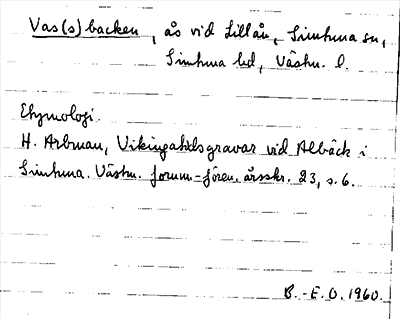 Vas(s)backen, ås vid Lillån, Simtuna sn,
Simtuna hd, Västm. l.
Etymologi.
H. Arbman, Vikingatidsgravar vid Ålbäck i
Simtuna. Västm. fornm.-fören. årsskr. 23, s. 6.
B.-E. O. 1960.